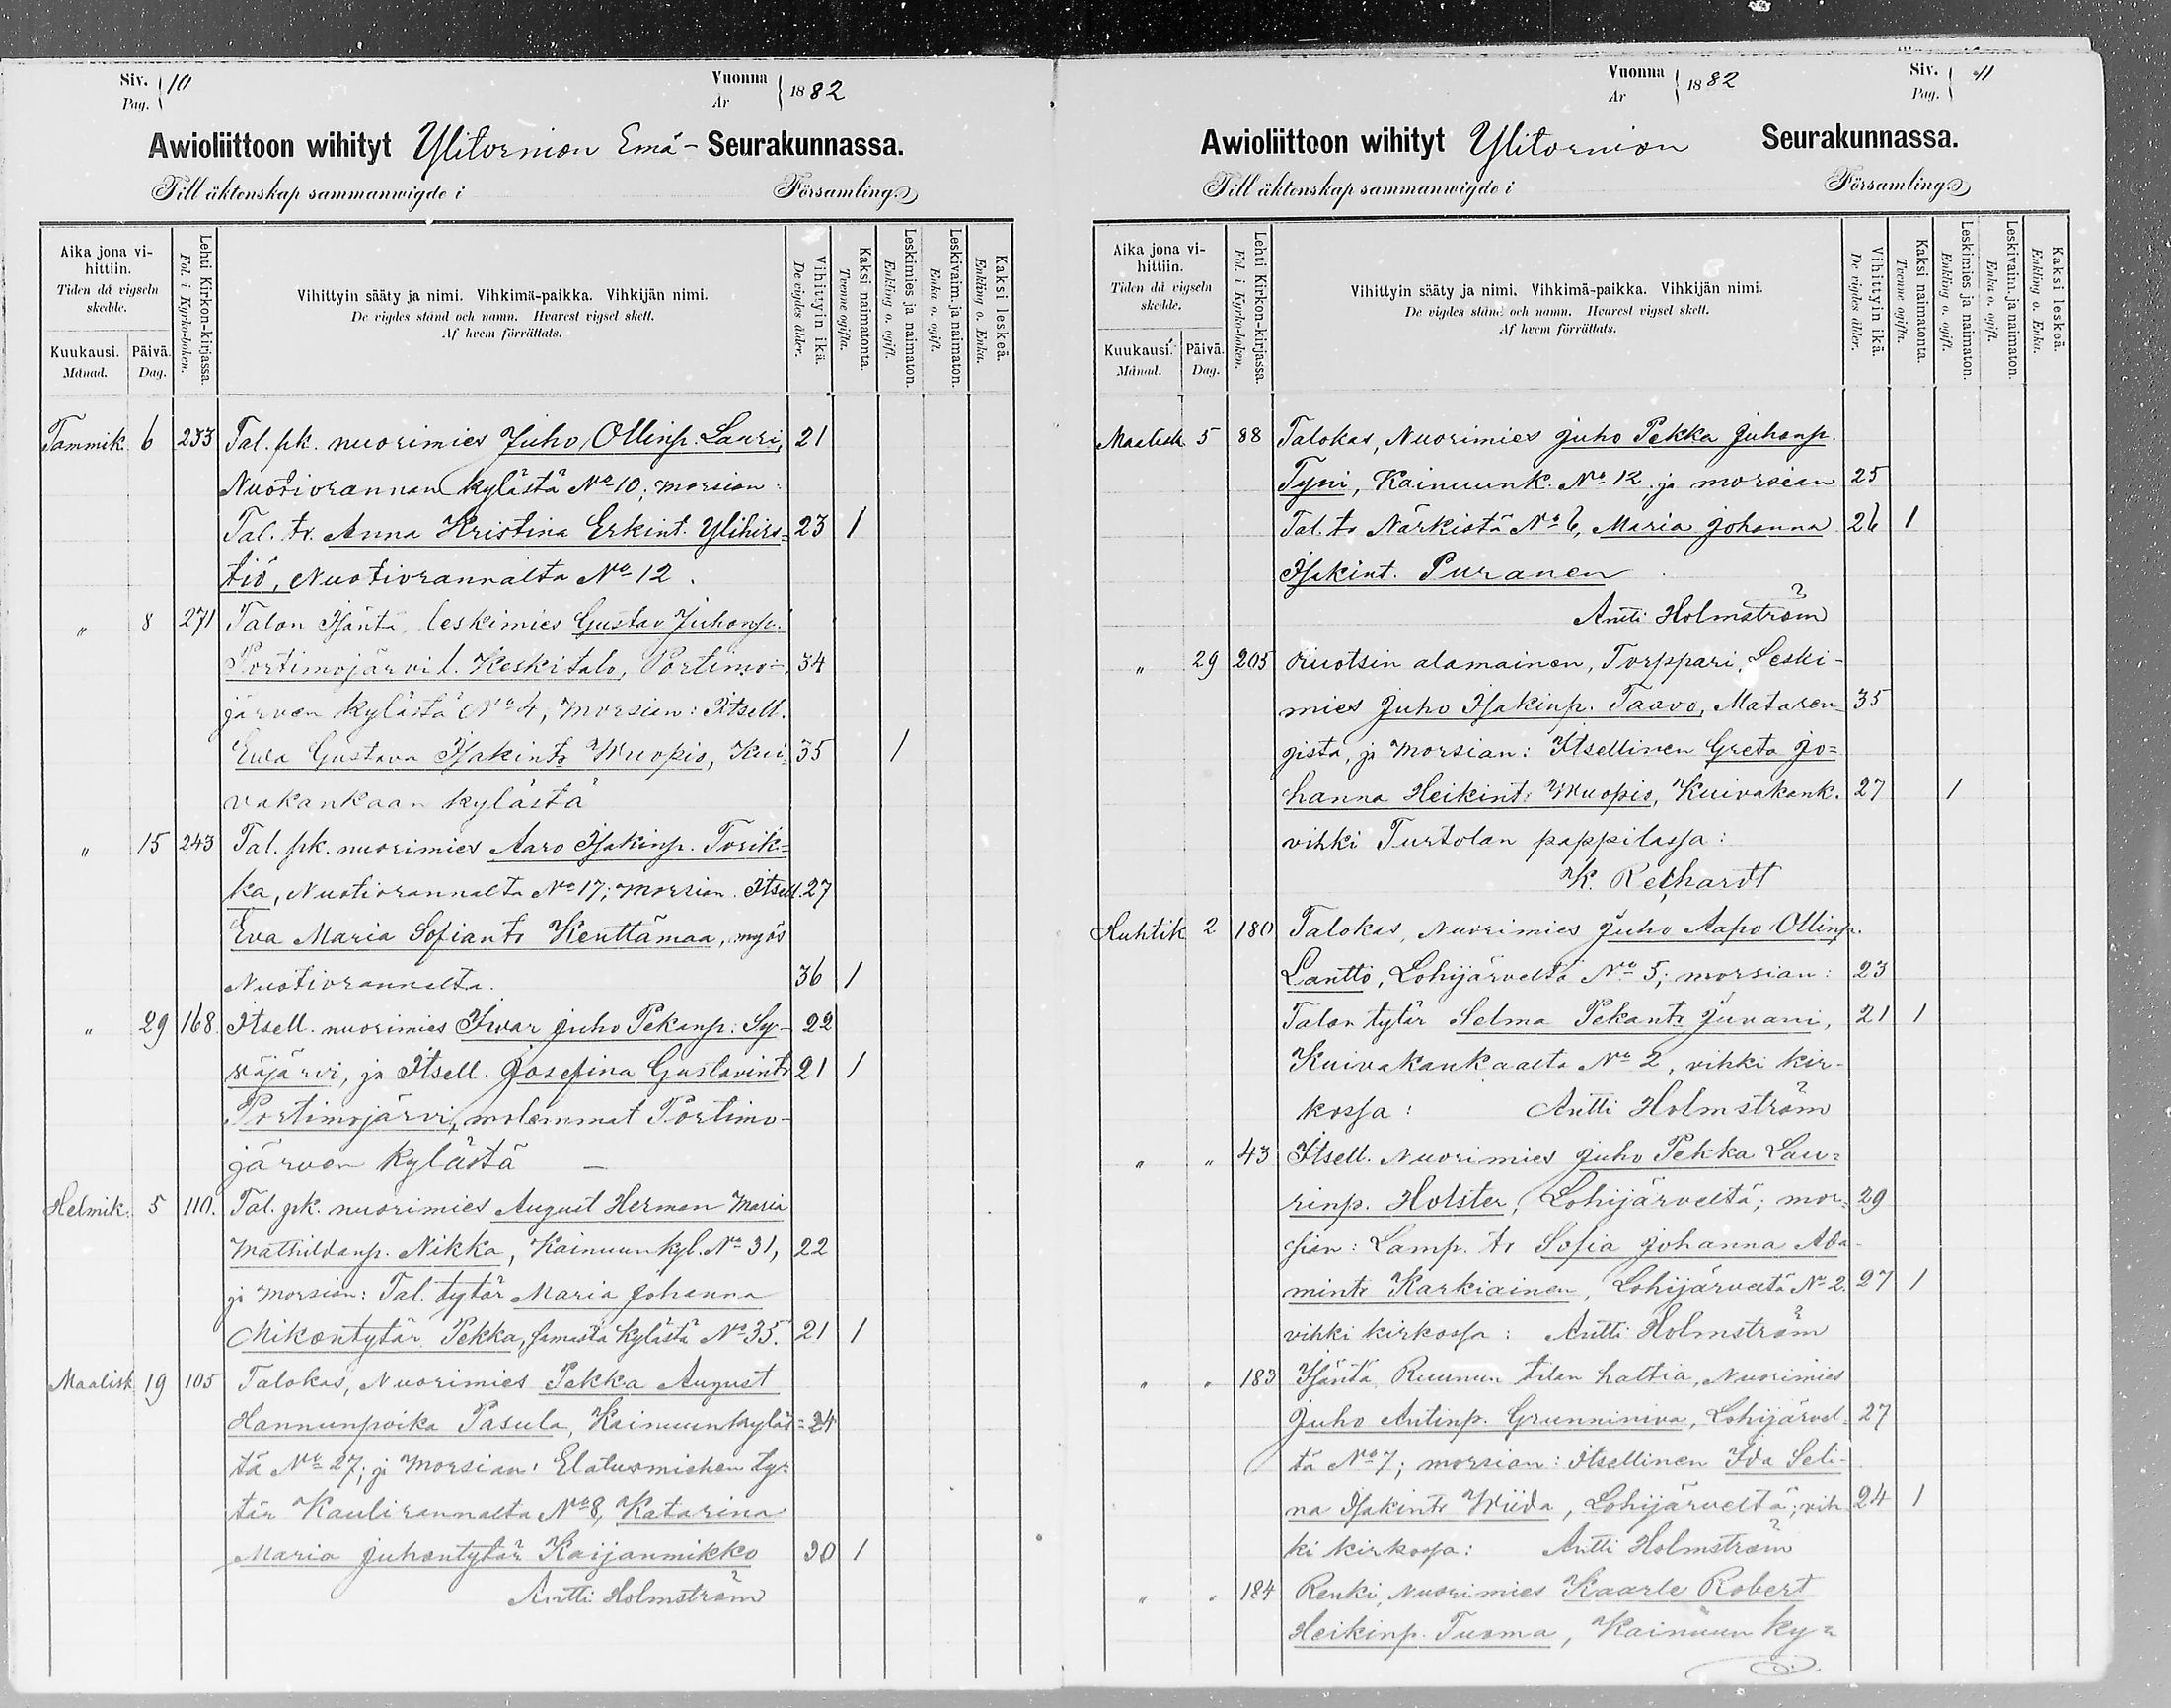 Siv. 10
Pag.
Vuonna 1882
År
Awioliittoon wihityt Ylitornion Emä- Seurakunnassa.
Till äktenskap sammanwigde i Församling.
Aika jona vi-
hittiin.
Tiden då vigseln
skedde.
Kuukausi. Månad.
Päivä. Dag.
Lehti Kirkon-kirjassa.
Fol. i Kyrko-boken.
Vihittyin sääty ja nimi. Vihkimä-paikka. Vihkijän nimi.
De vigdes stånd och namn. Hvarest vigsel skett.
Af hvem förrättats.
Vihittyin ikä.
De vigdes ålder.
Kaksi naimatonta.
Tvenne ogifta.
Leskimies ja naimaton.
Enkling o. ogift.
Leskivaim. ja naimaton.
Enka o. ogift.
Kaksi leskeä.
Enkling o. Enka.
Tammik. 6 233 Tal. pk. nuorimies Juho Ollinp. Lauri, 21
Nuotiorannan kylästä No 10; morsian:
Tal. tr. Anna Kristina Erkint. Ylihirs= 23 1
tiö, Nuotiorannalta No 12.
" 8 271 Talon Isäntä, leskimies Gustav Juhonp.
Portimojärvi l. Keskitalo, Portimo= 34
järven kylästä No 4, morsian: Itsell.
Ewa Gustava Isakintr Wuopio, Kui= 35 1
vakankaan kylästä
" 15 243 Tal. pk. nuorimies Aaro Isakinp. Torik=
ka, Nuotiorannalta No 17; morsian. Itsell. 27
Eva Maria Sofiantr Kenttämaa, myös
Nuotiorannalta. 36 1
" 29 168. Itsell. nuorimies Iwar Juho Pekanp: Sy- 22
väjärvi, ja Itsell. Josefina Gustavintr 21 1
Portimojärvi, molemmat Portimo-
järven kylästä —
Helmik. 5 110. Tal. pk. nuorimies August Herman Maria
Mathildanp. Nikka, Kainuunkyl. No 31, 22
ja morsian: Tal. tytär Maria Johanna
Mikontytär Pekka, samasta kylästä No 35. 21 1
Maalisk 19 105 Talokas, Nuorimies Pekka August
Hannunpoika Pasula, Kainuunkyläs= 24
tä No 27; ja Morsian: Elatusmiehen ty=
tär Kaulirannalta No 8, Katarina
Maria Juhontytär Kaijanmikko 30 1
Antti Holmström
Vuonna 1882
År
Siv. 11
Pag.
Awioliittoon wihityt Ylitornion Seurakunnassa.
Till äktenskap sammanwigde i Församling.
Aika jona vi-
hittiin.
Tiden då vigseln
skedde.
Kuukausi. Månad.
Päivä. Dag.
Lehti Kirkon-kirjassa.
Fol. i Kyrko-boken.
Vihittyin sääty ja nimi. Vihkimä-paikka. Vihkijän nimi.
De vigdes stånd och namn. Hvarest vigsel skett.
Af hvem förrättats.
Vihittyin ikä.
De vigdes ålder.
Kaksi naimatonta.
Tvenne ogifta.
Leskimies ja naimaton.
Enkling o. ogift.
Leskivaim. ja naimaton.
Enka o. ogift.
Kaksi leskeä.
Enkling o. Enka.
Maalisk 5 88 Talokas, Nuorimies Juho Pekka Juhonp.
Tyni, Kainuunk. No 12 ja morsian 25
Tal. tr Närkistä No 6, Maria Johanna 26 1
Isakint. Puranen
Antti Holmström
" 29 205 Ruotsin alamainen, Torppari, Leski-
mies Juho Isakinp. Taavo, Mataren= 35
gista, ja Morsian: Itsellinen Greta Jo=
hanna Heikint. Wuopio, Kuivakank. 27 1
vihki Turtolan pappilassa:
K. Rechardt
Huhtik 2 180 Talokas, Nuorimies Juho Aapo Ollinp.
Lantto, Lohijärveltä No 5; morsian: 23
Talon tytär Selma Pekantr Juvani, 21 1
Kuivakankaalta No 2, vihki kir-
kossa: Antti Holmström
" " 43 Itsell. Nuorimies Juho Pekka Lau=
rinp. Holster, Lohijärveltä; mor= 29
sian: Lamp. tr Sofia Johanna Ada-
mintr Karkiainen, Lohijärveltä No 2. 27 1
vihki kirkossa: Antti Holmström
" " 183 Isäntä, Ruunun tilan haltia, Nuorimies
Juho Antinp. Grunniniva, Lohijärvel= 27
tä No 7; morsian: Itsellinen Ida Seli-
na Isakintr Wiida, Lohijärveltä; vih 24 1
ki kirkossa: Antti Holmström
" " 184 Renki, Nuorimies Kaarle Robert
Heikinp. Tuoma, Kainuun ky=